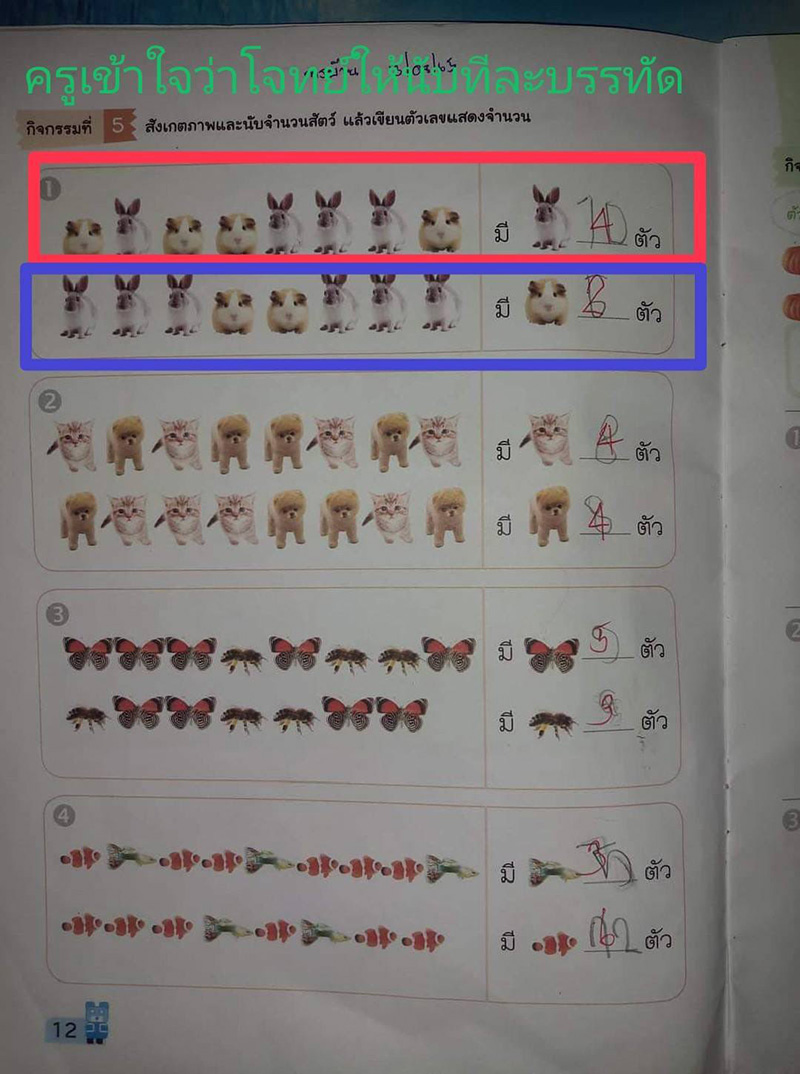 ครูเข้าใจว่าโจทย์ให้นับทีละบรรทัด
กิจกรรมที่ 5 สังเกตภาพและนับจำนวนสัตว์ แล้วเขียนตัวเลขแสดงจำนวน
1
มี 4 ตัว
มี 2 ตัว
2
มี 4 ตัว
มี 4 ตัว
3
มี 5 ตัว
มี 3 ตัว
4
มี 3 ตัว
มี 6 ตัว
12